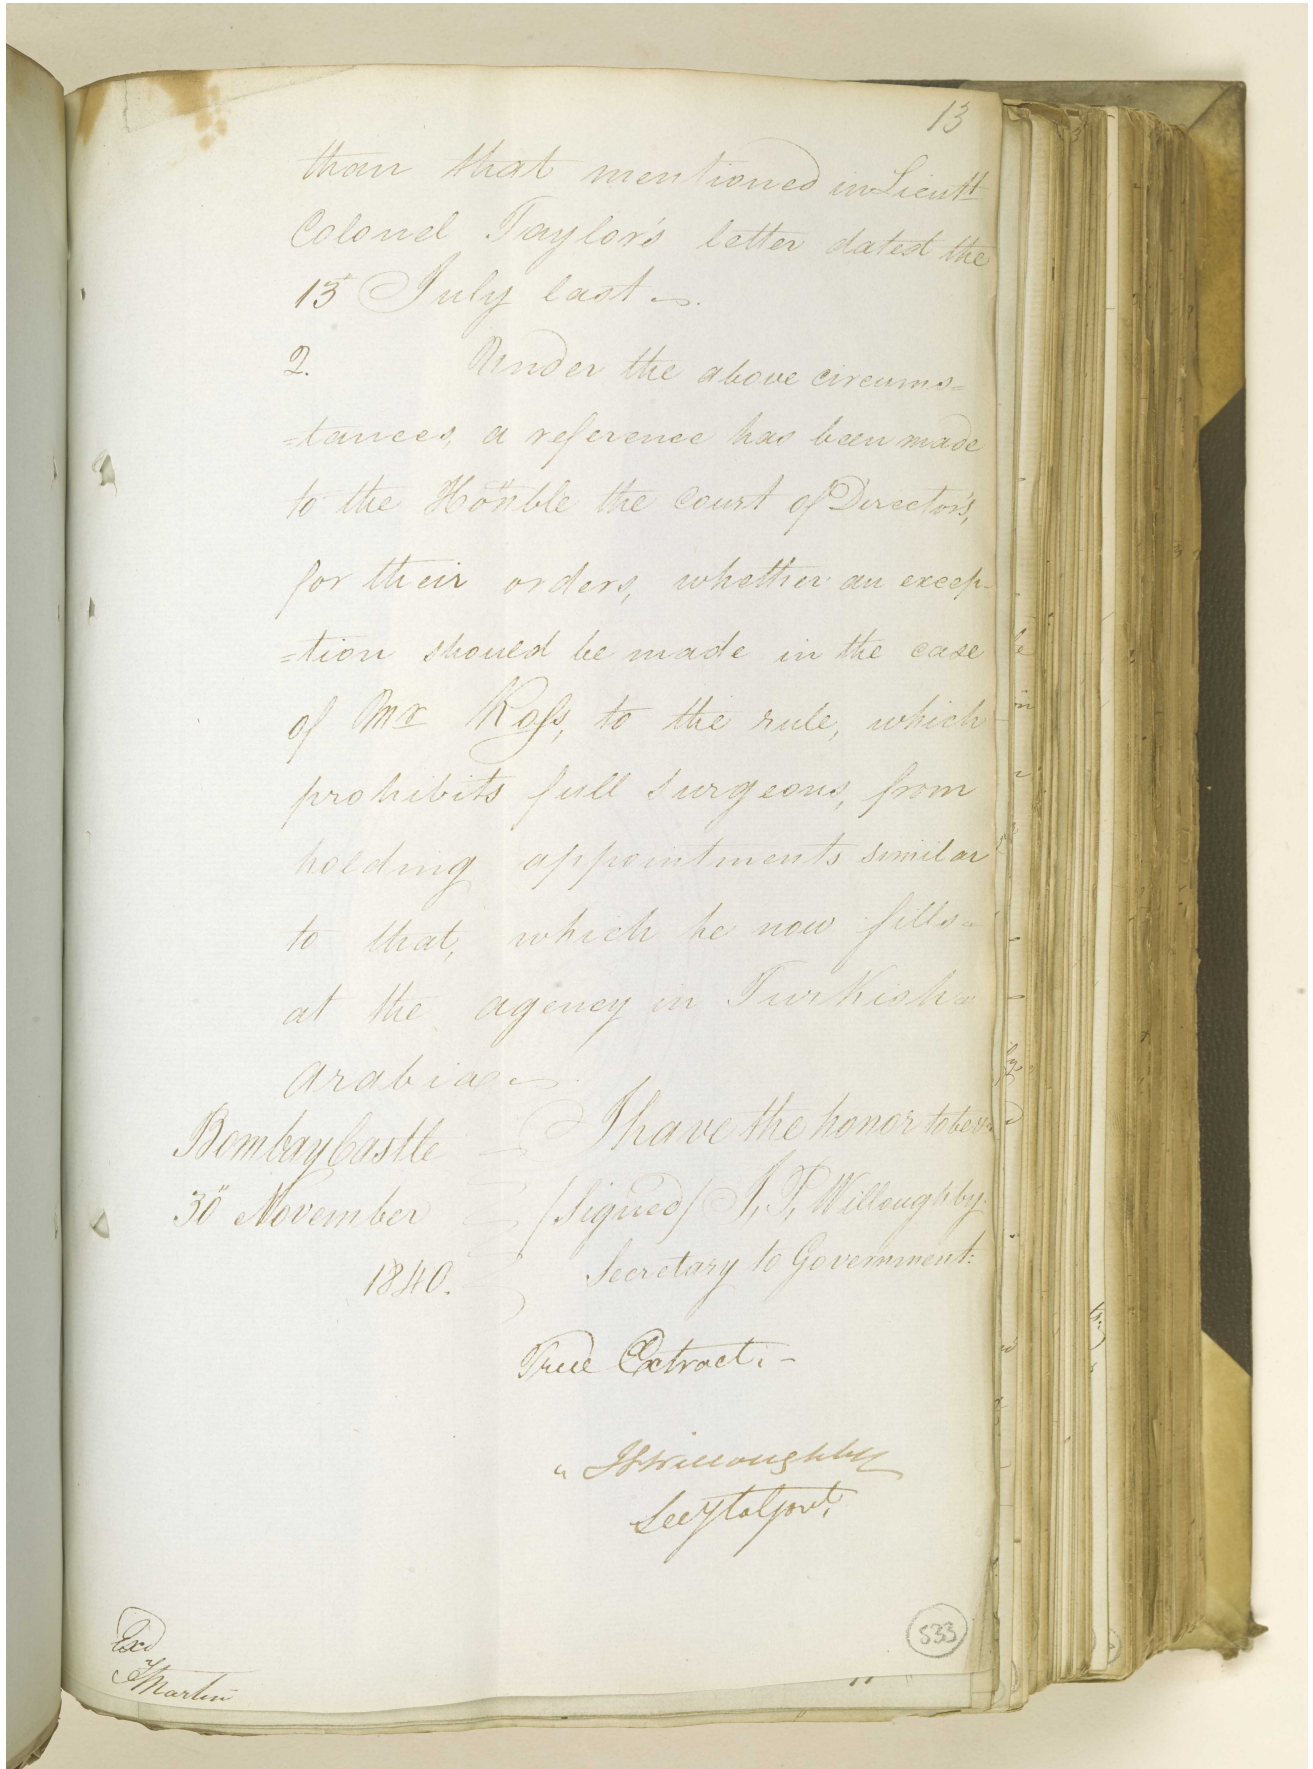 13
than that mentioned in Lieutt
Colonel Taylor's letter dated the
15 July last.
2. Under the above circums=
=tances, a reference has been made
to the Honble the Court of Directors,
for their orders, whether an excep-
=tion should be made in the case
of Mr Ross, to the rule, which
prohibits full Surgeons, from
holding appointments similar
to that, which he now fills
at the agency in Turkish
Arabia
I have the honor to be &c
Bombay Castle
(Signed) J, P, Willoughby.
30 November
Secretary to Government:
1840.
True Extract:-
JPWilloughby
Secy to Govt.
Exd
Martin
533